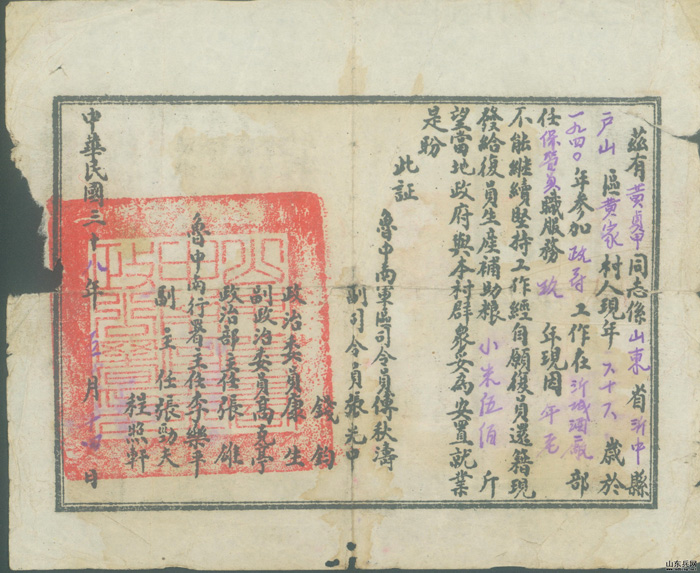 茲有黃貞甲同志係山東省沂中縣
戶山區黃家村人現年六十六歲於
一九四〇年參加政府工作在沂城酒瓶部
任保管員職服務政年現因年老
不能继續堅持工作經自願復員還籍現
發給復員生產補助粮小米伍佰斤
望當地政府與本村群衆妥為安置就業
是盼
此証
魯中南軍區司令員傅秋濤
副司令員張光中
錢鈞
政治委員康生
副政治委員高克亭
政治部主任張雄
魯中南行署主任李樂平
副主任張勁夫
程照軒
中華民國三十八年月十日
山东兵网